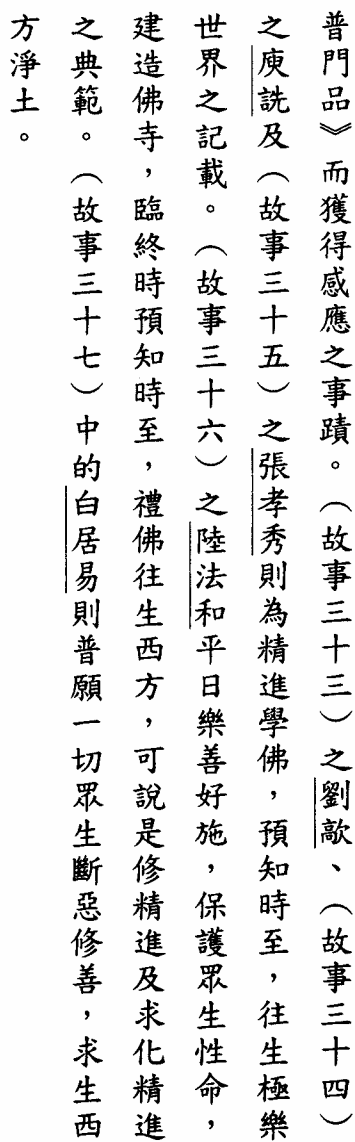 普門品》而獲得感應之事蹟。（故事三十三）之劉歊、（故事三十四）
之庾詵及（故事三十五）之張孝秀則為精進學佛，預知時至，往生極樂
世界之記載。（故事三十六）之陸法和平日樂善好施，保護眾生性命，
建造佛寺，臨終時預知時至，禮佛往生西方，可說是修精進及求化精進
之典範。（故事三十七）中的白居易則普願一切眾生斷惡修善，求生西
方淨土。